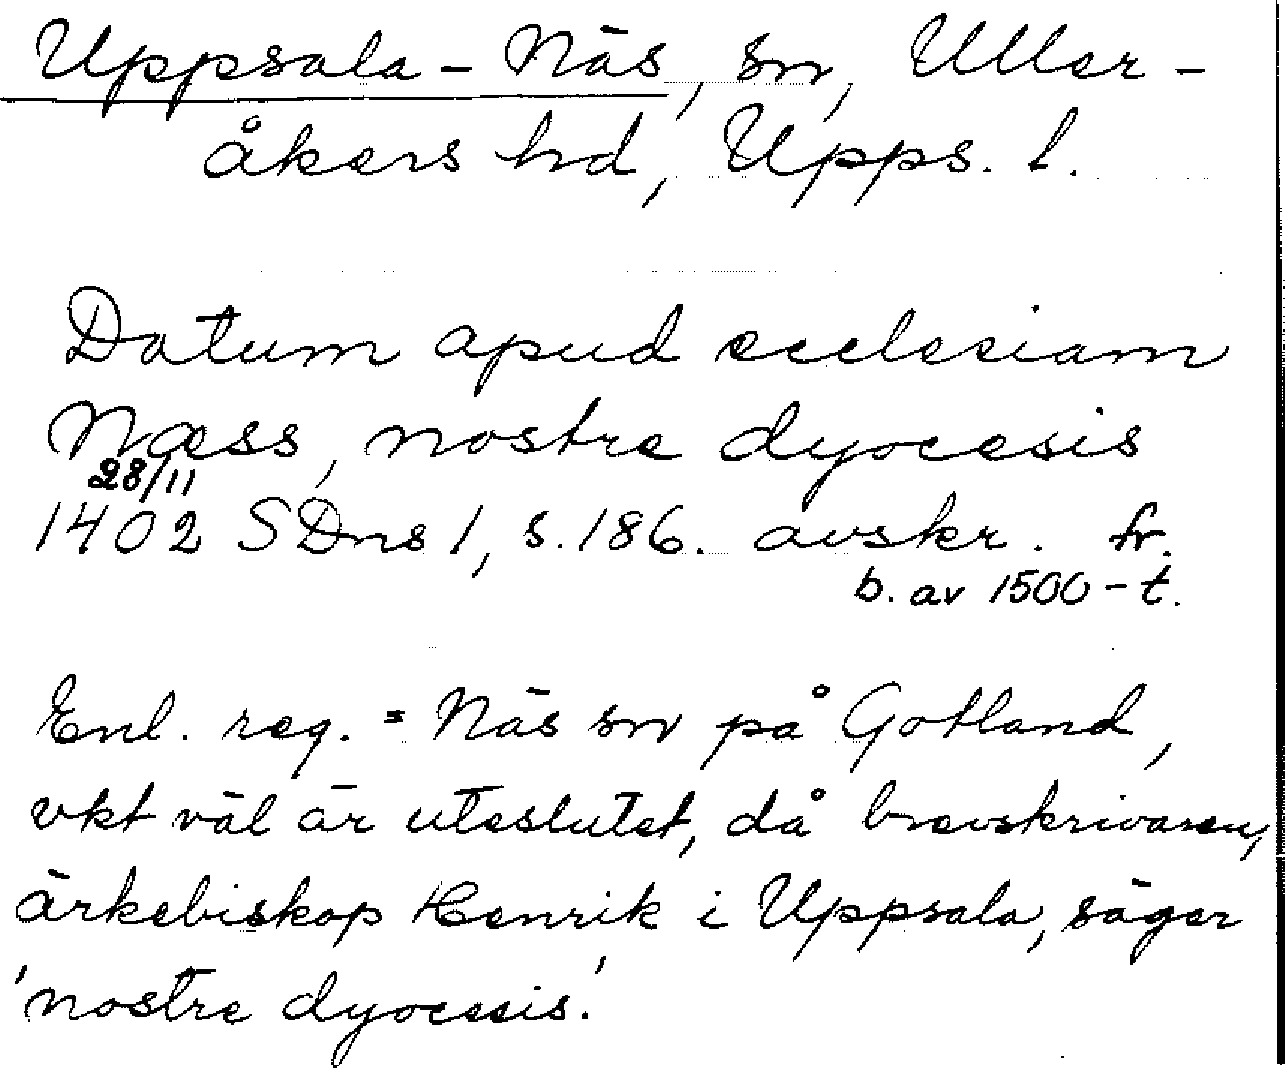 Uppsala-Näs, sn, Uller-
åkers hd, Upps. l.
Datum apud ecclesiam
Næss, nostre dyocesis
28/11
1402 SDns 1, s. 186. avskr. fr.
b. av 1500-t.
Enl. reg. = Näs sn på Gotland,
vkt väl är uteslutet, då brevskrivaren,
ärkebiskop Henrik i Uppsala, säger
'nostre dyocesis.'